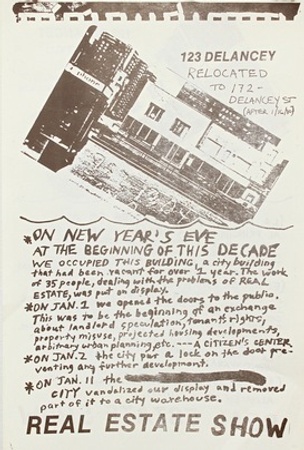 phone
123 DELANCEY
RELOCATED
TO 172-
DELANCEY ST
*ON NEW YEAR'S EVE
AT THE BEGINNING OF THIS DECADE
WE OCCUPIED THIS BUILDING, a city building
that had been vacant for over 1 year. The work
of 35 people, dealing with the problems of REAL
ESTATE, was put on display.
*ON JAN. 1 we opened the doors to the public.
This was to be the beginning of an exchange
about landlord speculation, tenants rights,
property misuse, projected housing developments,
arbitrary urban planning, etc. --- A CITIZEN'S CENTER
*ON JAN. 2 the city put a lock on the door pre-
venting any further development.
*ON JAN. 11 the
CITY vandalized our display and removed
part of it to a city warehouse.
REAL ESTATE SHOW